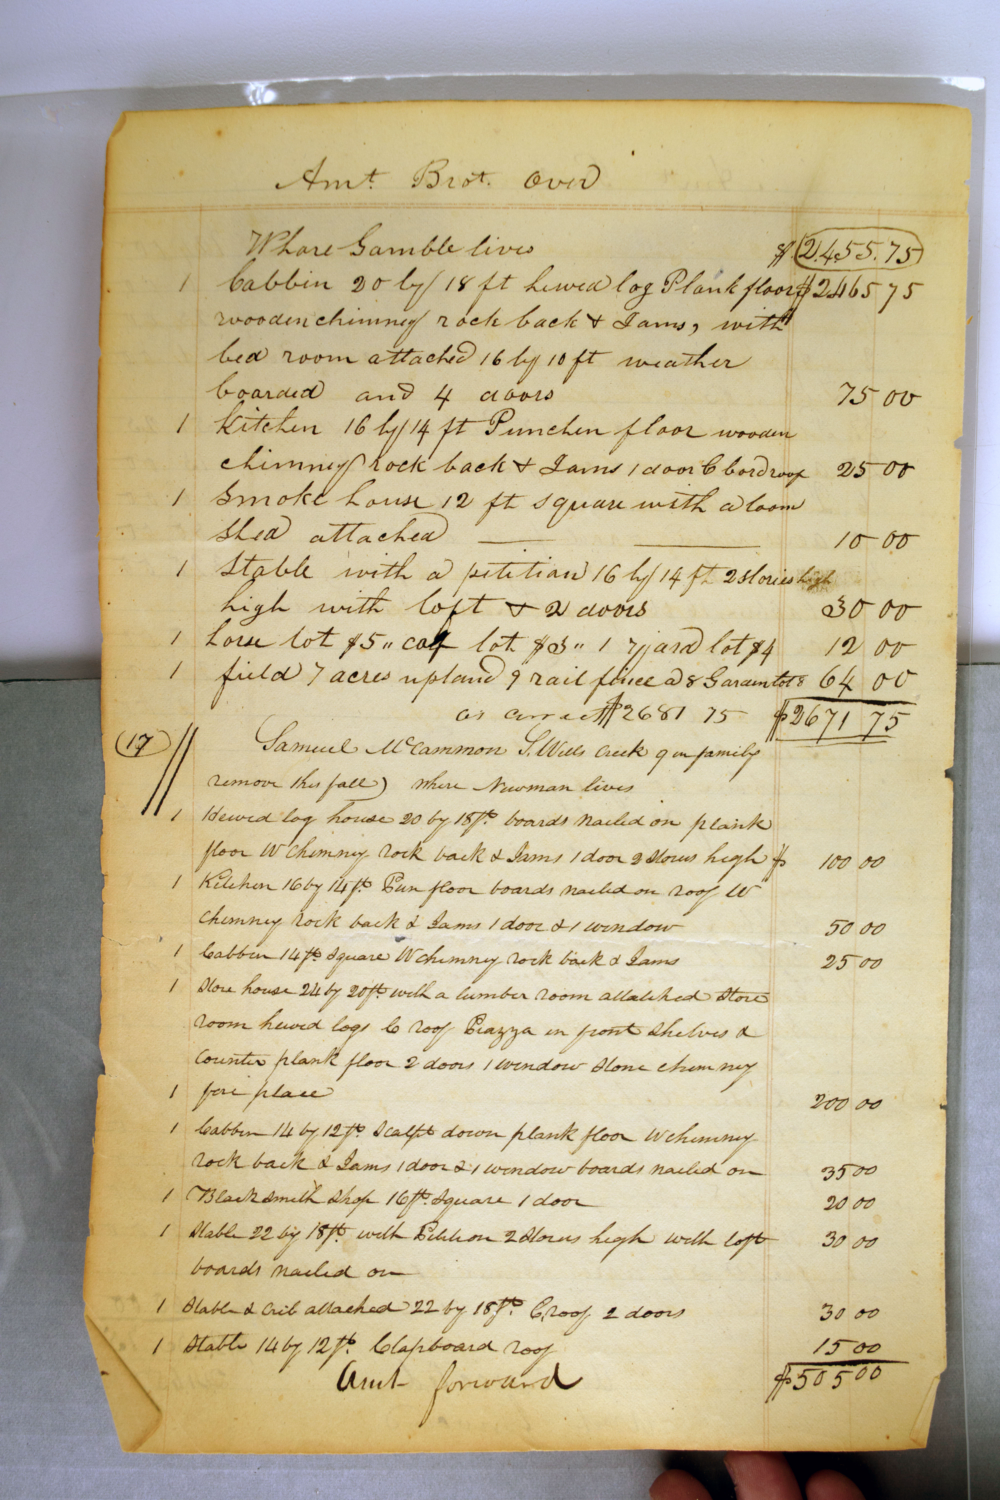 Amt. Brot. Over
Whare Gamble lives $ 2.455.75
1 Cabbin 20 by 18 ft hewed log Plank floor $2465 75
wooden chimney rock back & Jams, with
bed room attached 16 by 10 ft weather
boarded and 4 doors 75 00
1 Kitchen 16 by 14 ft Punchen floor wooden
chimney rock back & Jams 1 door C bord roof 25 00
1 Smoke house 12 ft square with a loom
shed attached 10 00
1 Stable with a petition 16 by 14 ft 2 stories high
high with loft & 2 doors 30 00
1 horse lot $5 " calf lot $3 " 1 yard lot $4 12 00
1 field 7 acres upland 9 rail fence @ 8 Garden lot 8 64 00
or correct $2681 75 $2671 75
17 Samuel McCammon S. Wills Creek 9 in family
remove this fall) where Newman lives
1 Hewed log house 20 by 18 ft. boards nailed on plank
floor W chimney rock back & Jams 1 door 2 Stores high $ 100 00
1 Kitchen 16 by 14 ft Pun floor boards nailed on roof W
chimney rock back & Jams 1 door & 1 window 50 00
1 Cabbin 14 ft Square W chimney rock back & Jams 25 00
1 Store house 24 by 20 ft with a lumber room attatched Store
room hewed logs C roof Piazza in front shelves &
Counter plank floor 2 doors 1 window Stone chimney
1 fire place 200 00
1 Cabbin 14 by 12 ft. Scalpt down plank floor W chimney
rock back & Jams 1 door & 1 window boards nailed on 35 00
1 Black smith Shop 16 ft. Square 1 door 20 00
1 Stable 22 by 18 ft. with Petition 2 Stores high with loft 30 00
boards nailed on
1 Stable & Crib attached 22 by 18 ft. C, roof 2 doors 30 00
1 Stable 14 by 12 ft. Clapboard roof 15 00
Amt forward $505 00